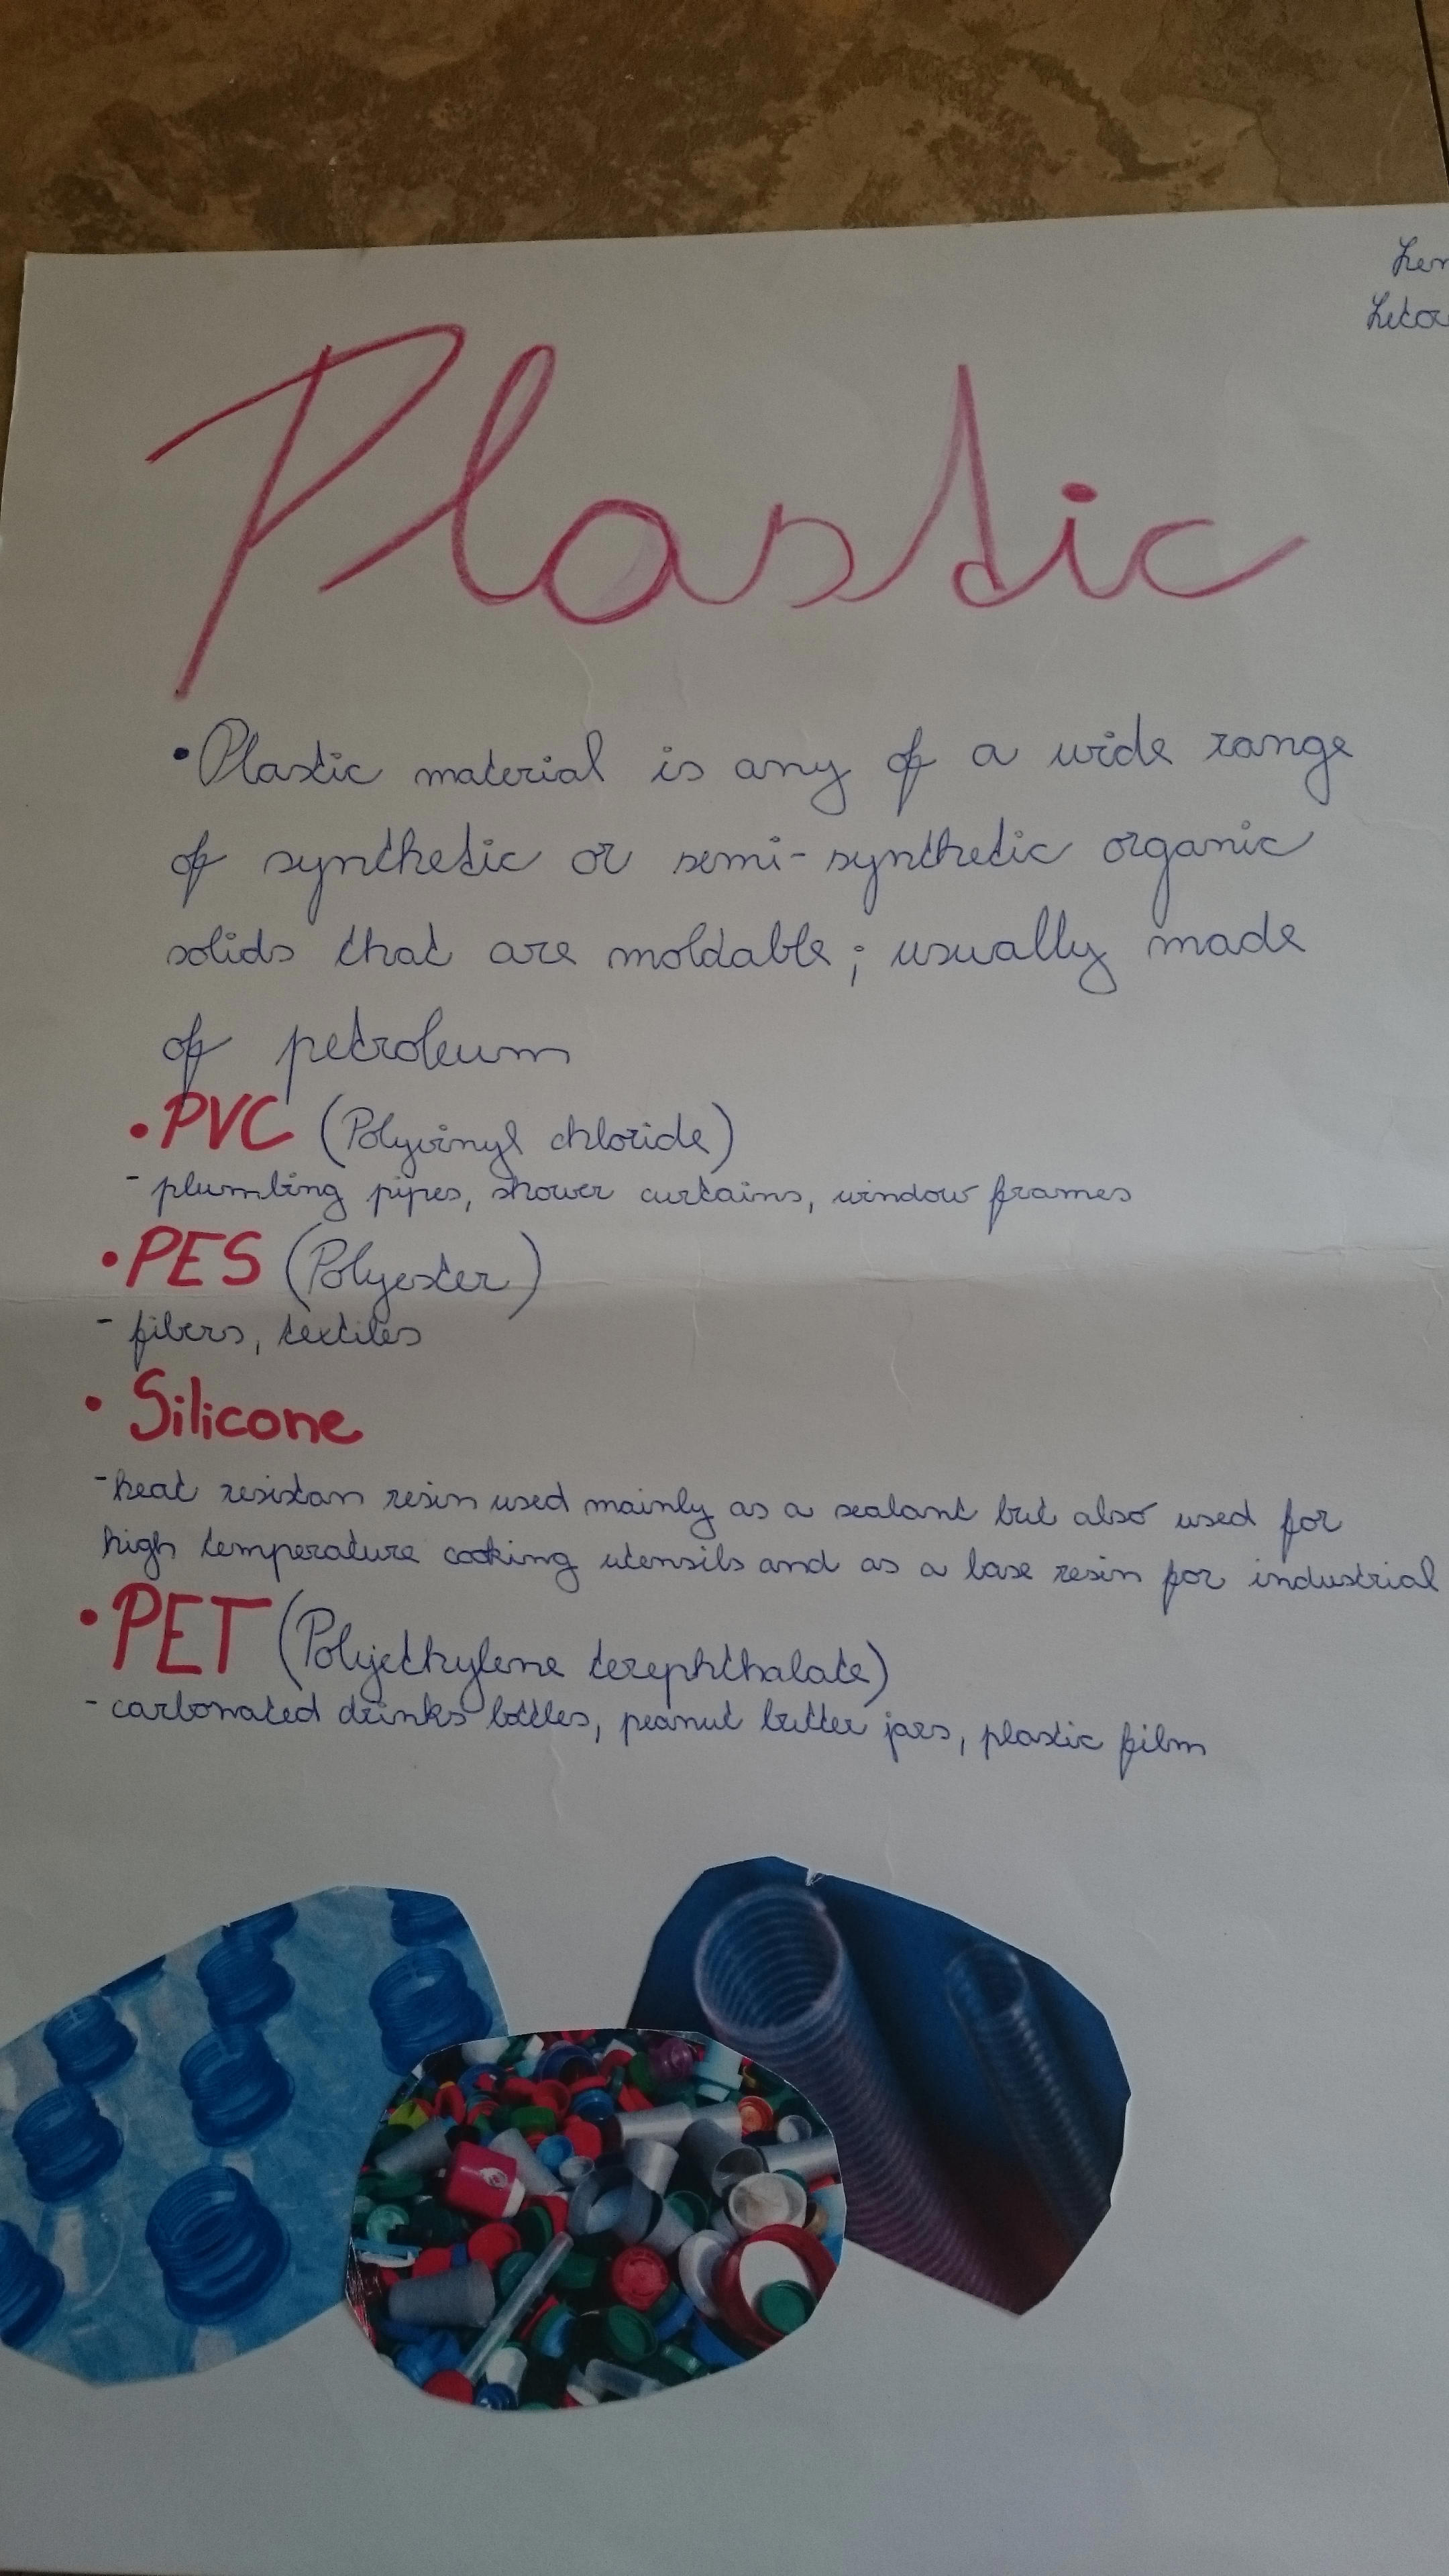 Plastic
•Plastic material is any of a wide range
of synthetic or semi-synthetic organic
solids that are moldable; usually made
of petroleum
•PVC (Polyvinyl chloride)
- plumbing pipes, shower curtains, window frames
•PES (Polyester)
- fibers, textiles
• Silicone
- heat resistan resin used mainly as a sealant but also used for
high temperature cooking utensils and as a base resin for industrial
•PET (Polyjethylene terephthalate)
- carbonated drinks bottles, peanut butter jars, plastic film